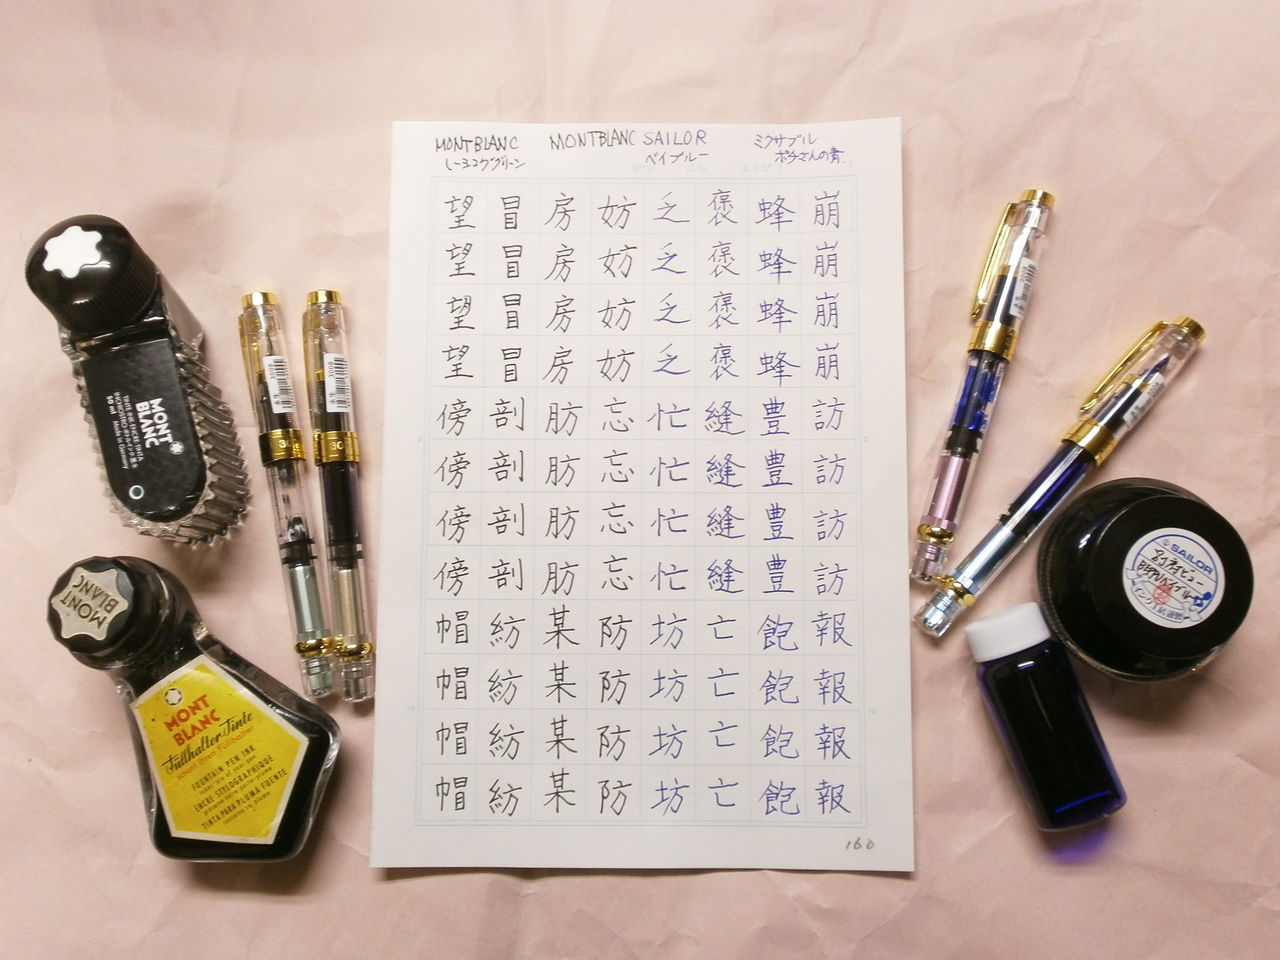 MONTBLANC MONTBLANC SAILOR ミクサブル
ベイブルー ポチさんの青.
望冒房妨乏褒蜂崩
望冒房妨乏褒蜂崩
望冒房妨乏褒蜂崩
望冒房妨乏褒蜂崩
傍剖肪忘忙縫豊訪
傍剖肪忘忙縫豊訪
傍剖肪忘忙縫豊訪
傍剖肪忘忙縫豊訪
帽紡某防坊亡飽報
帽紡某防坊亡飽報
帽紡某防坊亡飽報
帽紡某防坊亡飽報
160
MONT
BLANC
TINTE INK ENCRE TINTA
INCHIOSTRO
50 ml Made in Germany
MONT
BLANC
MONT
BLANC
Füllhalter-Tinte
schont Ihren Füllhalter
FOUNTAIN PEN INK
ENCRE STYLOGRAPHIQUE
TINTA PARA PLUMA FUENTE
3000
3000
30
30
SAILOR